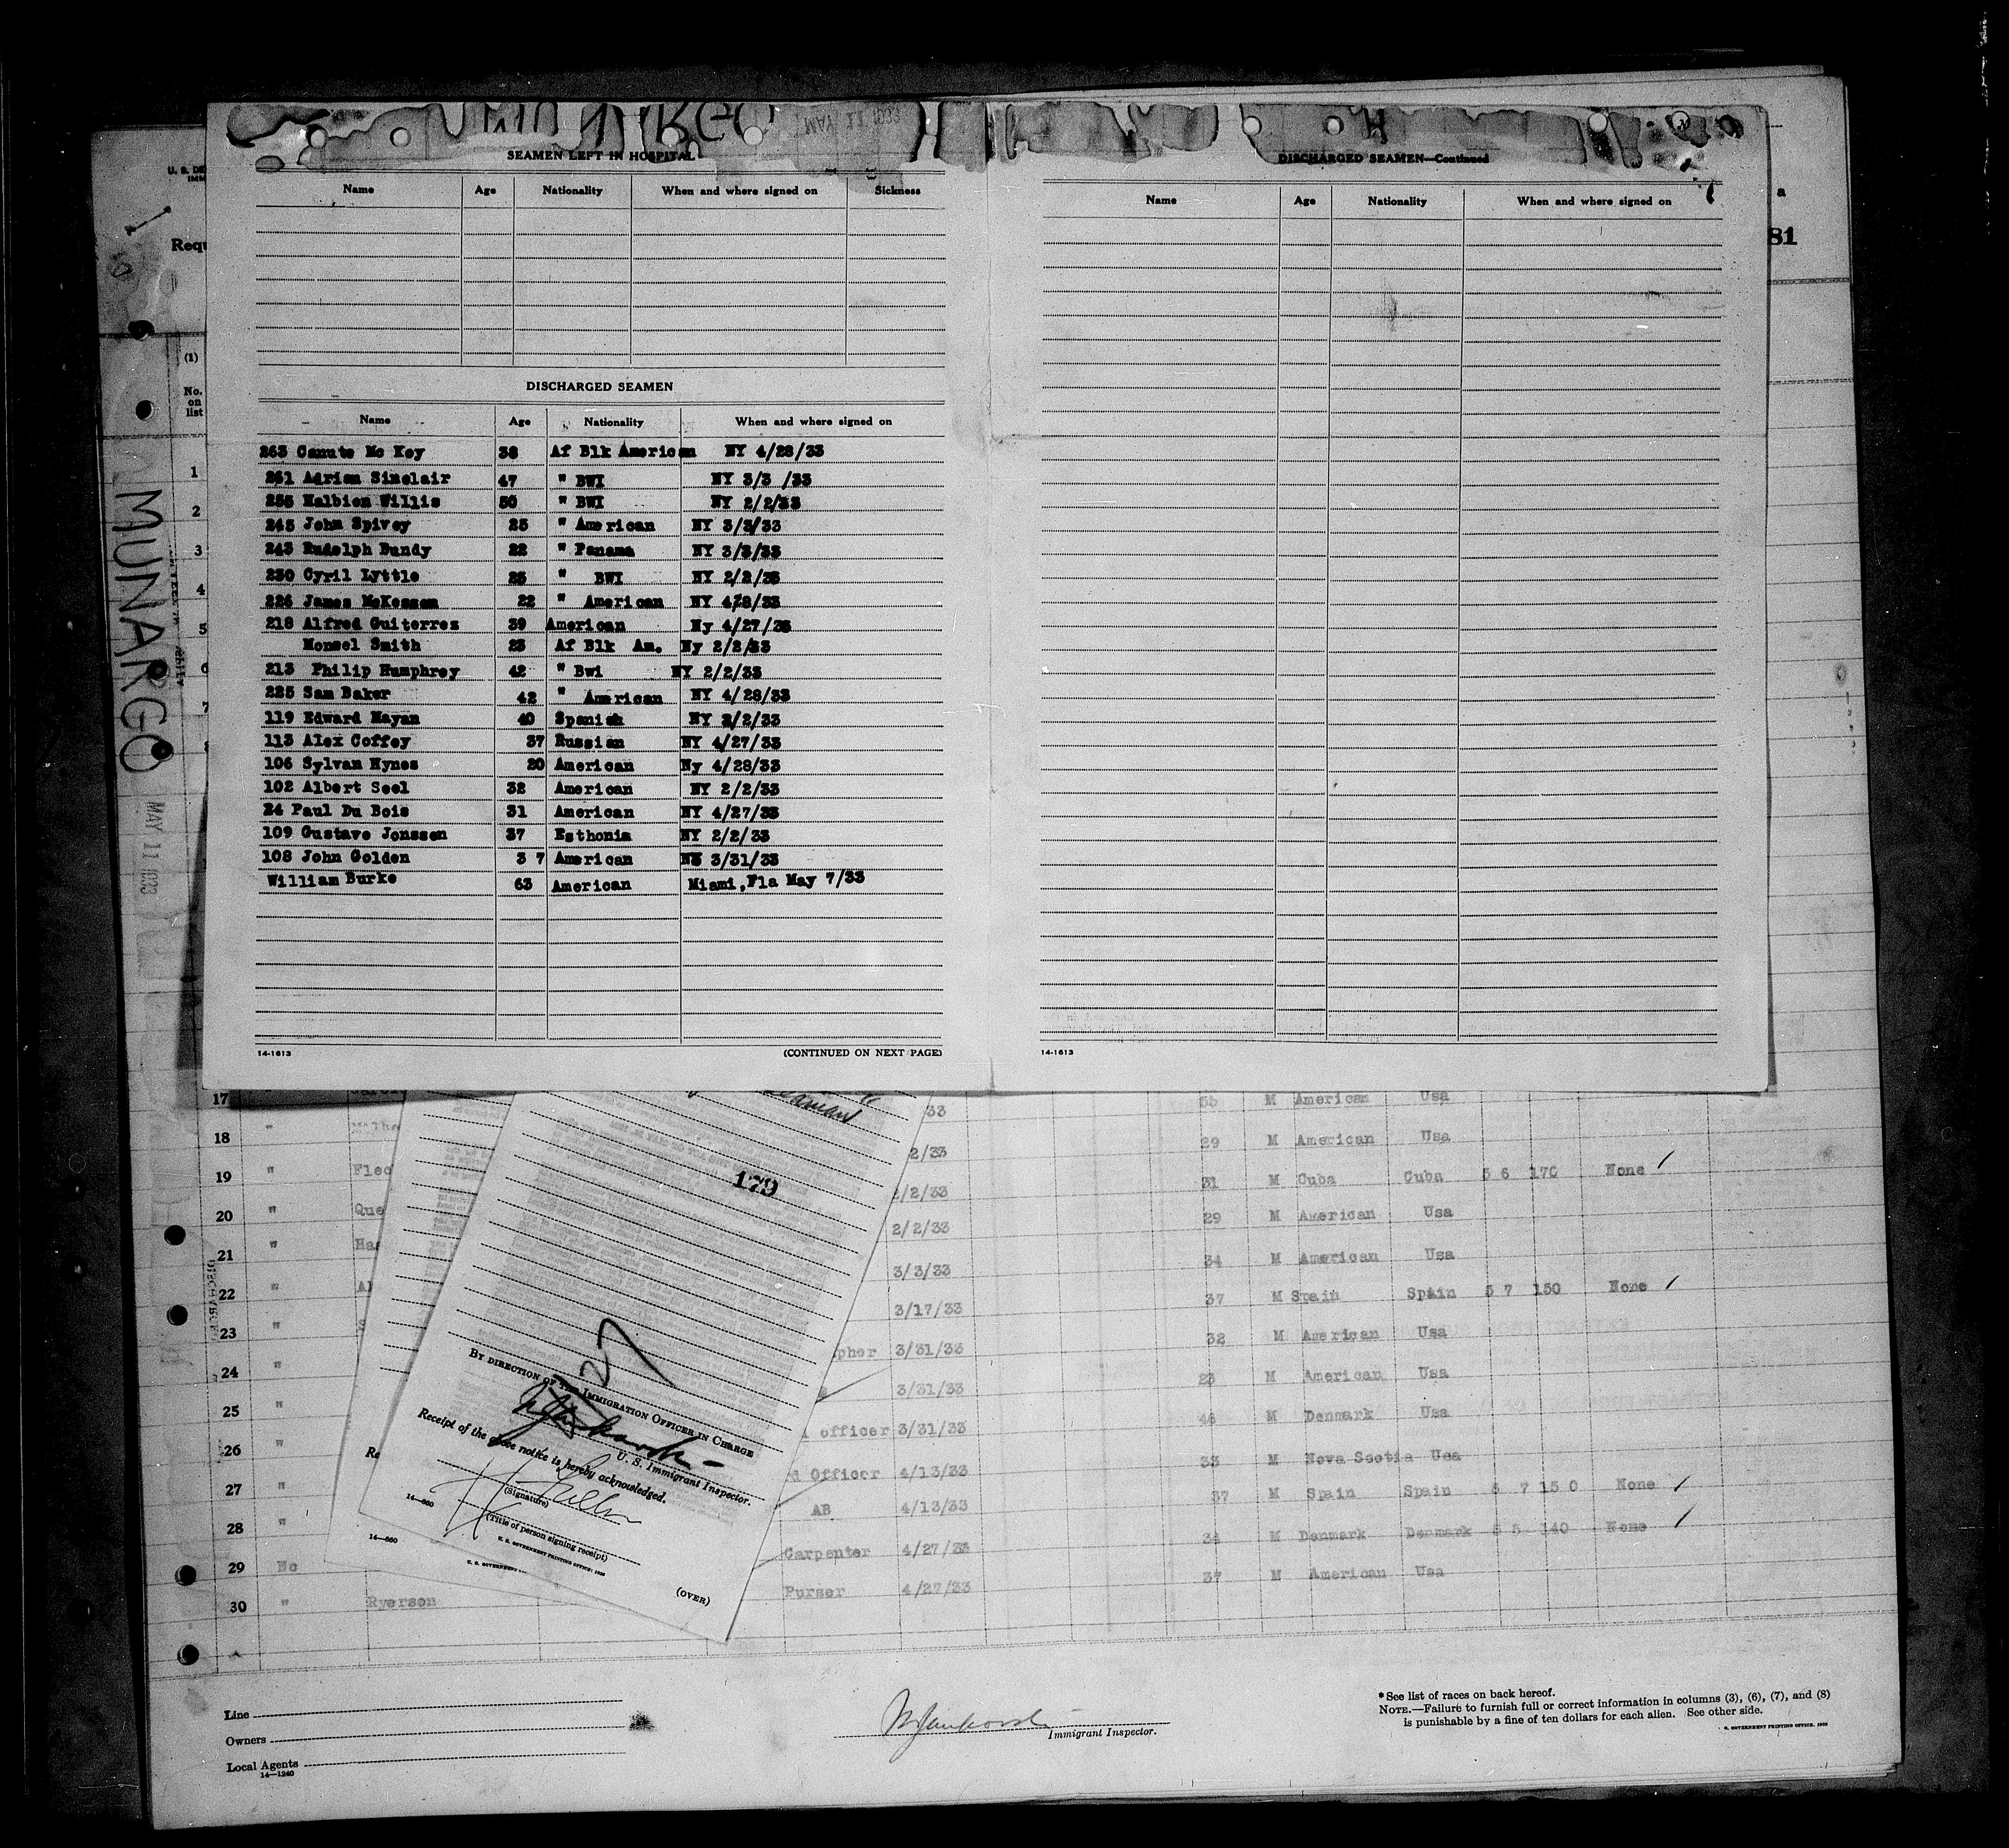 MUNARGO
MAY 11 1933
SEAMEN LEFT IN HOSPITAL
Name Age Nationality When and where signed on Sickness
DISCHARGED SEAMEN
Name Age Nationality When and where signed on
263 Canute Mc Key 38 Af Blk American NY 4/28/33
261 Adrian Sinclair 47 " BWI NY 3/3 /33
255 Halbion Willis 50 " BWI NY 2/2/33
245 John Spivey 25 " American NY 3/3/33
243 Rudolph Bundy 22 " Panama NY 3/3/33
230 Cyril Lyttle 25 " BWI NY 2/2/33
226 James McKessen 22 " American NY 428/33
218 Alfred Guiterrez 39 American Ny 4/27/33
Monsel Smith 23 Af Blk Am. Ny 2/2/33
213 Philip Humphrey 42 " Bwi NY 2/2/33
225 Sam Baker 42 " American NY 4/28/33
119 Edward Mayan 40 Spanish NY 2/2/33
113 Alex Coffey 37 Russian NY 4/27/33
106 Sylvan Hynes 20 American Ny 4/28/33
102 Albert Seel 32 American NY 2/2/33
24 Paul Du Bois 31 American NY 4/27/33
109 Gustave Jonssen 37 Esthonia NY 2/2/33
108 John Golden 3 7 American 3/31/33
William Burke 63 American Miami,Fla May 7/33
14-1613 (CONTINUED ON NEXT PAGE)
DISCHARGED SEAMEN—Continued
Name Age Nationality When and where signed on
14-1613
81
U. S. DE
IMM
Requ
(1)
No. on list
1
2
3
4
5
6
7
MUNARGO
MAY 11 1933
17 33 55 M American Usa
18 " 2/33 29 M American Usa
19 " Flec 2/2/33 31 M Cuba Cuba 5 6 170 None /
20 " Que 2/2/33 29 M American Usa
21 " Ha 3/3/33 34 M American Usa
22 " Al 3/17/33 37 M Spain Spain 5 7 150 None /
23 " pher 3/31/33 32 M American Usa
24 " 3/31/33 23 M American Usa
25 " officer 3/31/33 46 M Denmark Usa
26 " d Officer 4/13/33 33 M Nova Scotia Usa
27 " AB 4/13/33 37 M Spain Spain 5 7 15 0 None /
28 " Carpenter 4/27/33 34 M Denmark Denmark 5 5 140 None /
29 No Purser 4/27/33 37 M American Usa
30 " Ryerson
179
27
BY DIRECTION OF THE IMMIGRATION OFFICER IN CHARGE
U. S. Immigrant Inspector.
Receipt of the above notice is hereby acknowledged.
(Signature)
(Title of person signing receipt)
14—660 U. S. GOVERNMENT PRINTING OFFICE: 1930
(OVER)
Re
14—660
U. S. GOVERNMENT
Line
Owners
Local Agents
14—1240
Immigrant Inspector.
* See list of races on back hereof.
NOTE.—Failure to furnish full or correct information in columns (3), (6), (7), and (8)
is punishable by a fine of ten dollars for each alien. See other side.
GOVERNMENT PRINTING OFFICE